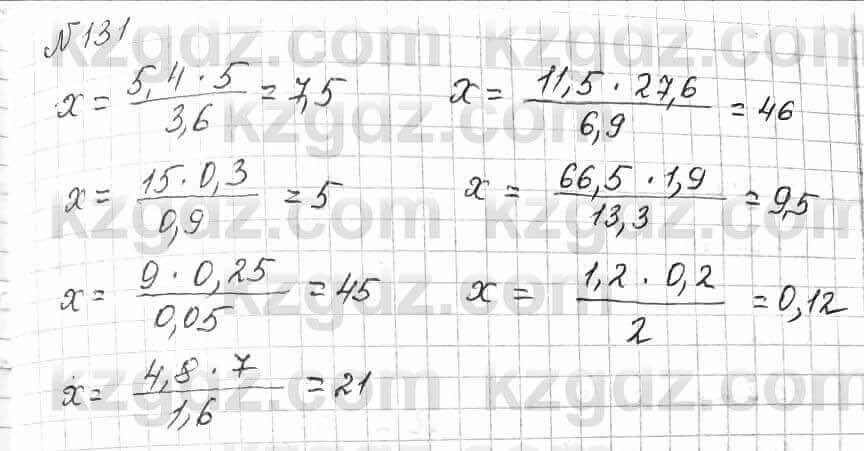 №131
x = 5,4 · 5 / 3,6 = 7,5
x = 11,5 · 27,6 / 6,9 = 46
x = 15 · 0,3 / 0,9 = 5
x = 66,5 · 1,9 / 13,3 = 9,5
x = 9 · 0,25 / 0,05 = 45
x = 1,2 · 0,2 / 2 = 0,12
x = 4,8 · 7 / 1,6 = 21
kzgdz.com kzgdz.com
kzgdz.com kzgdz.com
kzgdz.com kzgdz.com
kzgdz.com kzgdz.com
kzgdz.com kzgdz.com